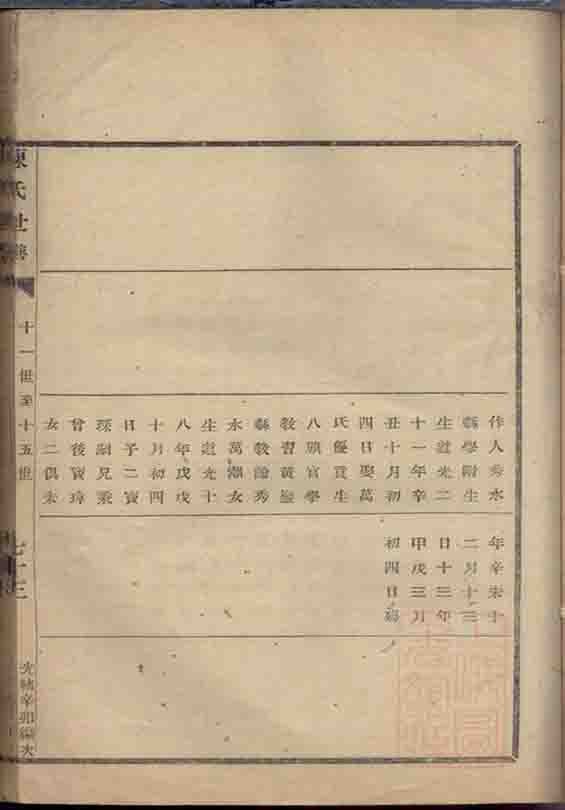 作人秀水
縣學附生
生道光二
十一年辛
丑十月初
四日娶萬
氏優貢生
八旗官學
教習黃巖
縣教諭秀
水萬潮女
生道光十
八年戊戌
十月初四
日子二寶
琛嗣兄秉
曾後寶瑋
女二俱未
年辛未十
二月十三
日十三年
甲戌三月
初四日
陳氏世譜
十一世至十五世
七十三
光緒辛卯編次